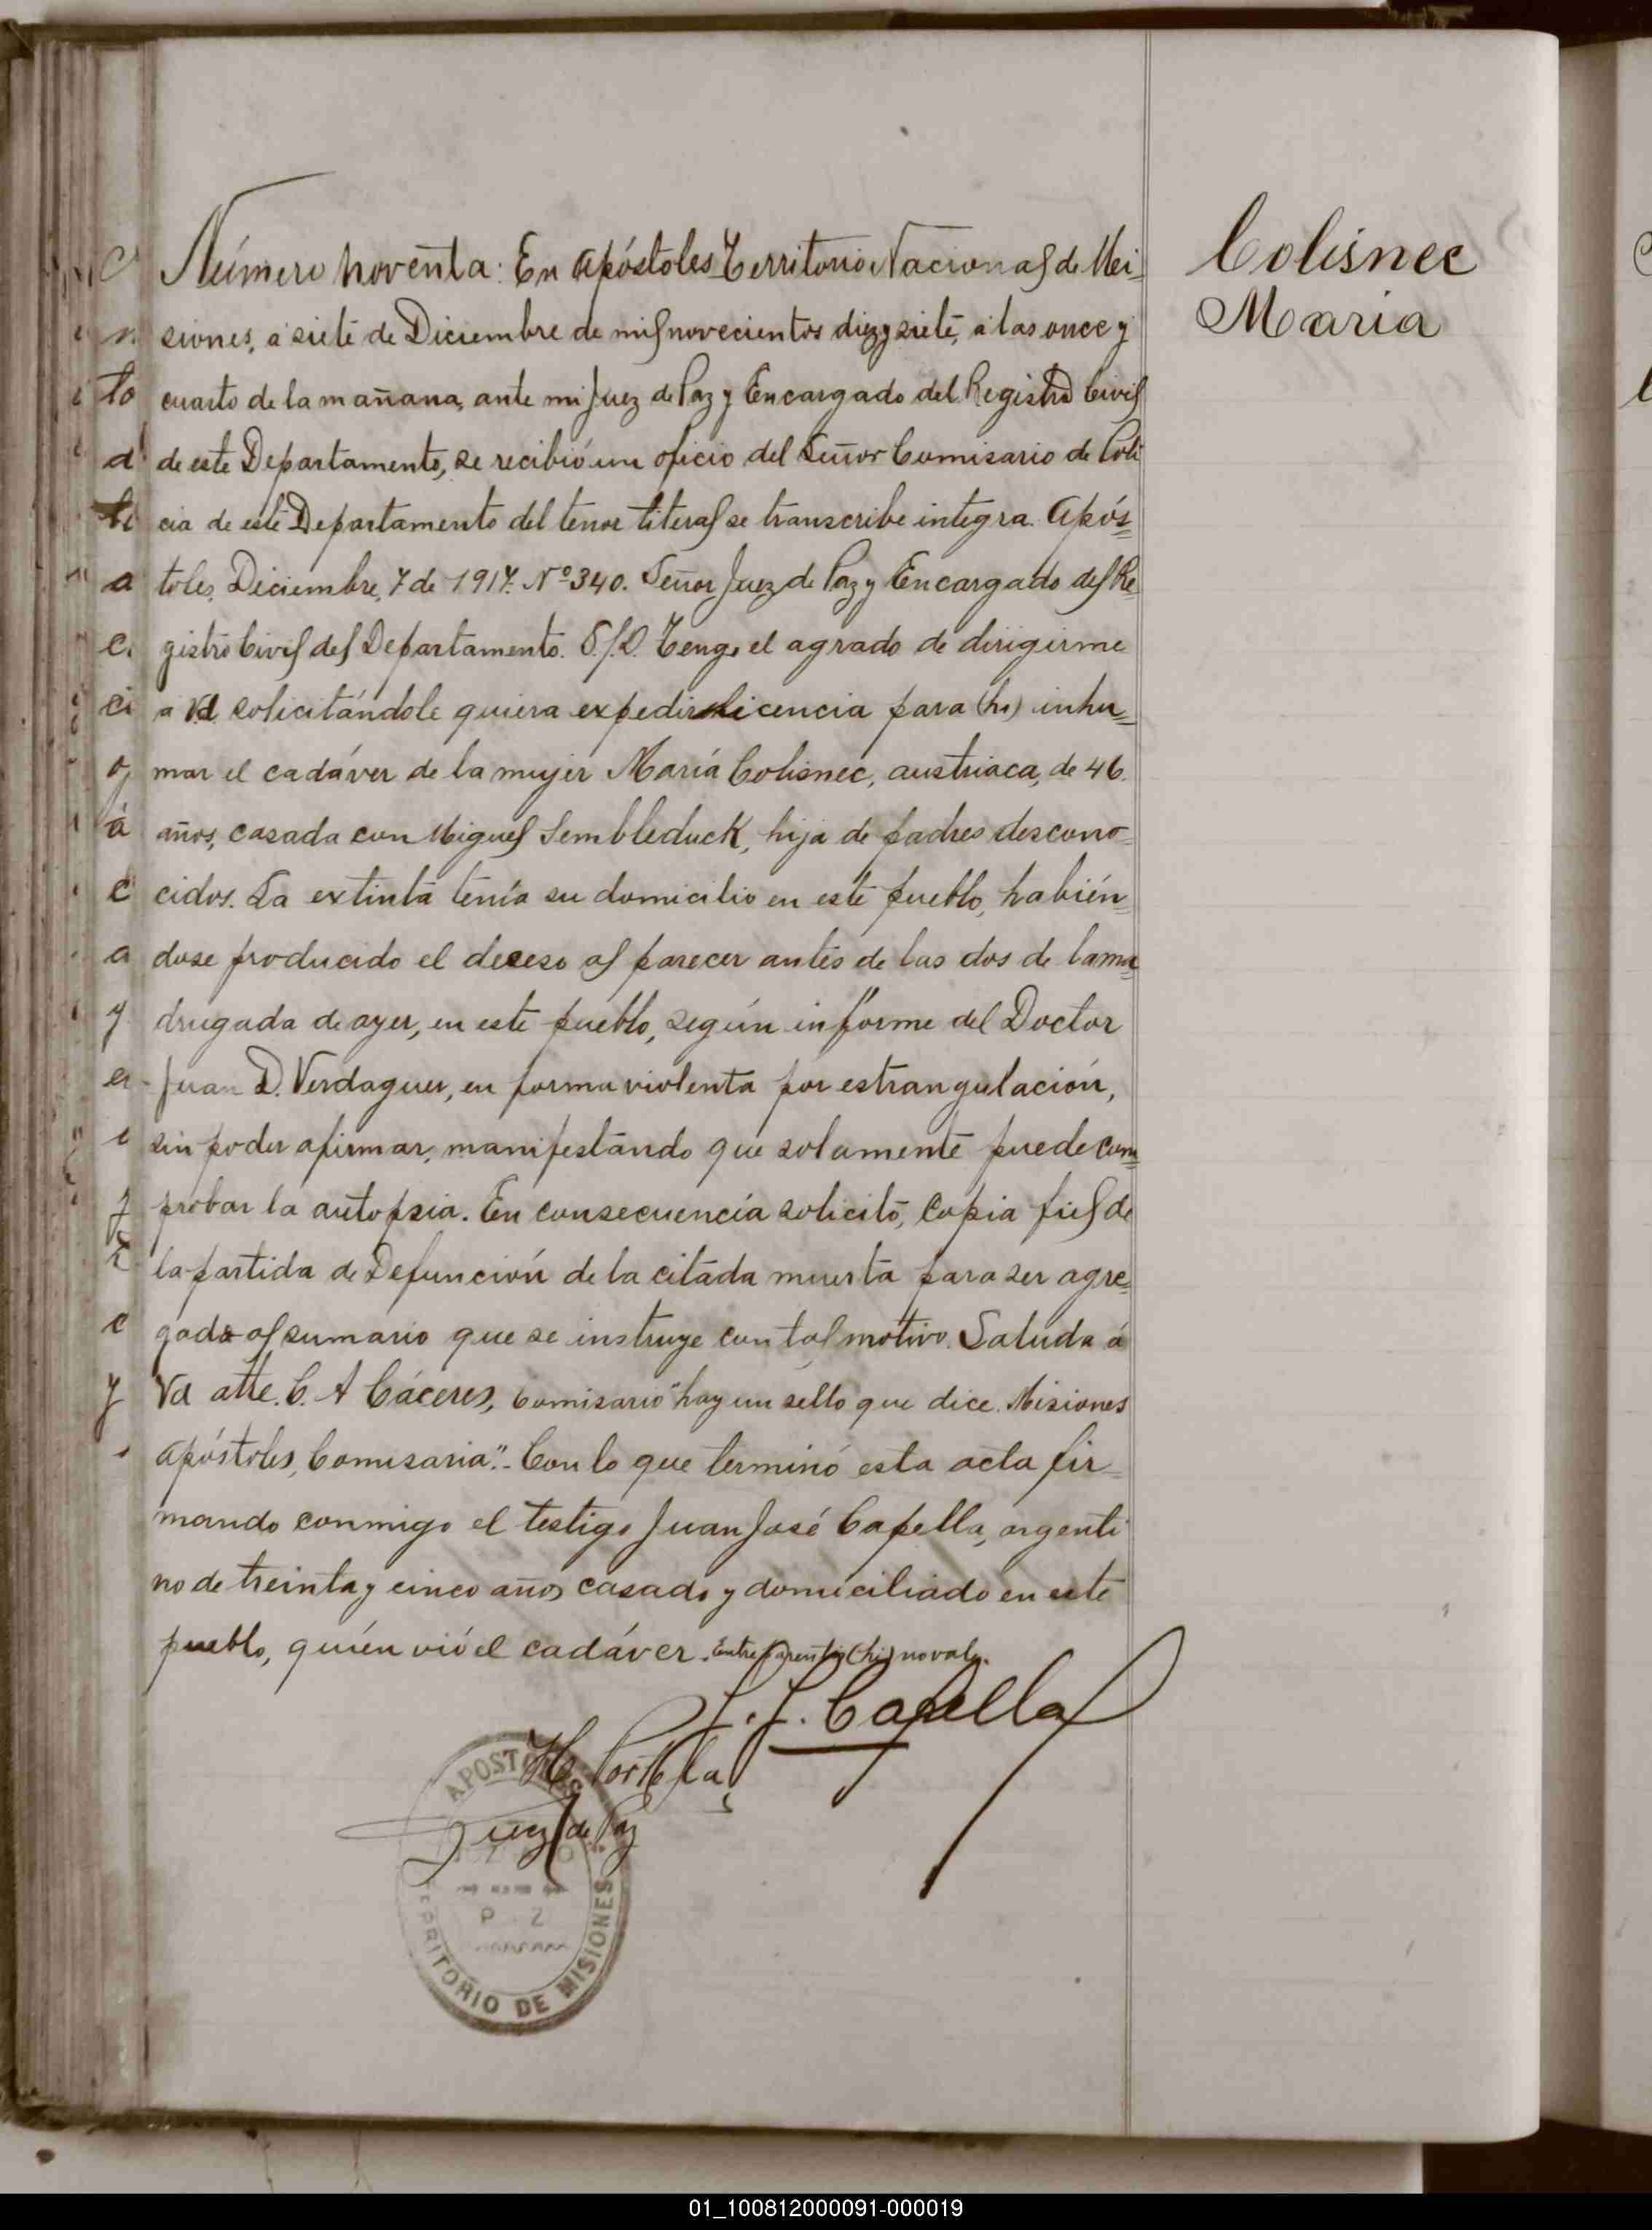 Colisnec
Maria
Número noventa: En Apóstoles Territorio Nacional de Mi-
siones, a siete de Diciembre de mil novecientos diez y siete, a las once y
cuarto de la mañana, ante mi Juez de Paz y Encargado del Registro Civil
de este Departamento, se recibió un oficio del Señor Comisario de Poli
cia de este Departamento del tenor literal se transcribe integra. Após=
toles, Diciembre, 7 de 1917. Nº 340. Señor Juez de Paz y Encargado del Re-
gistro Civil del Departamento. S/D. Tengo el agrado de dirigirme
a Vd. solicitándole quiera expedir licencia para (hi) inhu=
mar el cadáver de la mujer María Colisnec, austriaca, de 46.
años, casada con Miguel Sembleduck, hija de padres descono-
cidos. La extinta tenía su domicilio en este pueblo, habién=
dose producido el deceso al parecer antes de las dos de la ma=
drugada de ayer, en este pueblo, según informe del Doctor
Juan D. Verdaguer, en forma violenta por estrangulación,
sin poder afirmar, manifestando que solamente puede com=
probar la autopsia. En consecuencia solicito, copia fiel de
la partida de Defunción de la citada muerta para ser agre=
gada al sumario que se instruye con tal motivo. Saluda á
Vd atte. C. A Cáceres, Comisario" hay un sello que dice. Misiones
Apóstoles, Comisaria".- Con lo que terminó esta acta fir=
mando conmigo el testigo Juan José Capella, argenti
no de treinta y cinco años casado y domiciliado en este
pueblo, quién vió el cadáver. Entre parentis (hi) no vale.
J. J. Capella
H. Portela
Juez de Paz
APOSTOLES
TERRITORIO DE MISIONES
01_100812000091-000019